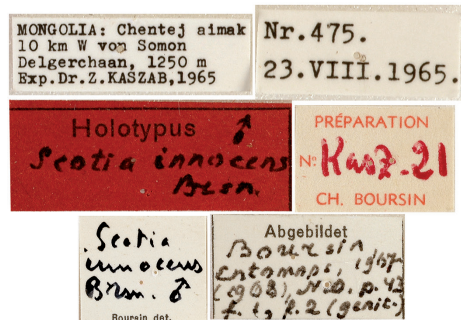 MONGOLIA: Chentej aimak
10 km W von Somon
Delgerchaan, 1250 m
Exp.Dr.Z.KASZAB,1965
Nr.475.
23.VIII.1965.
Holotypus ♂
Scotia innocens
Brsn.
PRÉPARATION
N° Kasz. 21
CH. BOURSIN
Scotia
innocens
Brsn. ♂
Boursin det.
Abgebildet
Boursin
Entomops, 1967
(1968), N.20. p. 43
f. 1, f. 2 (genit.)